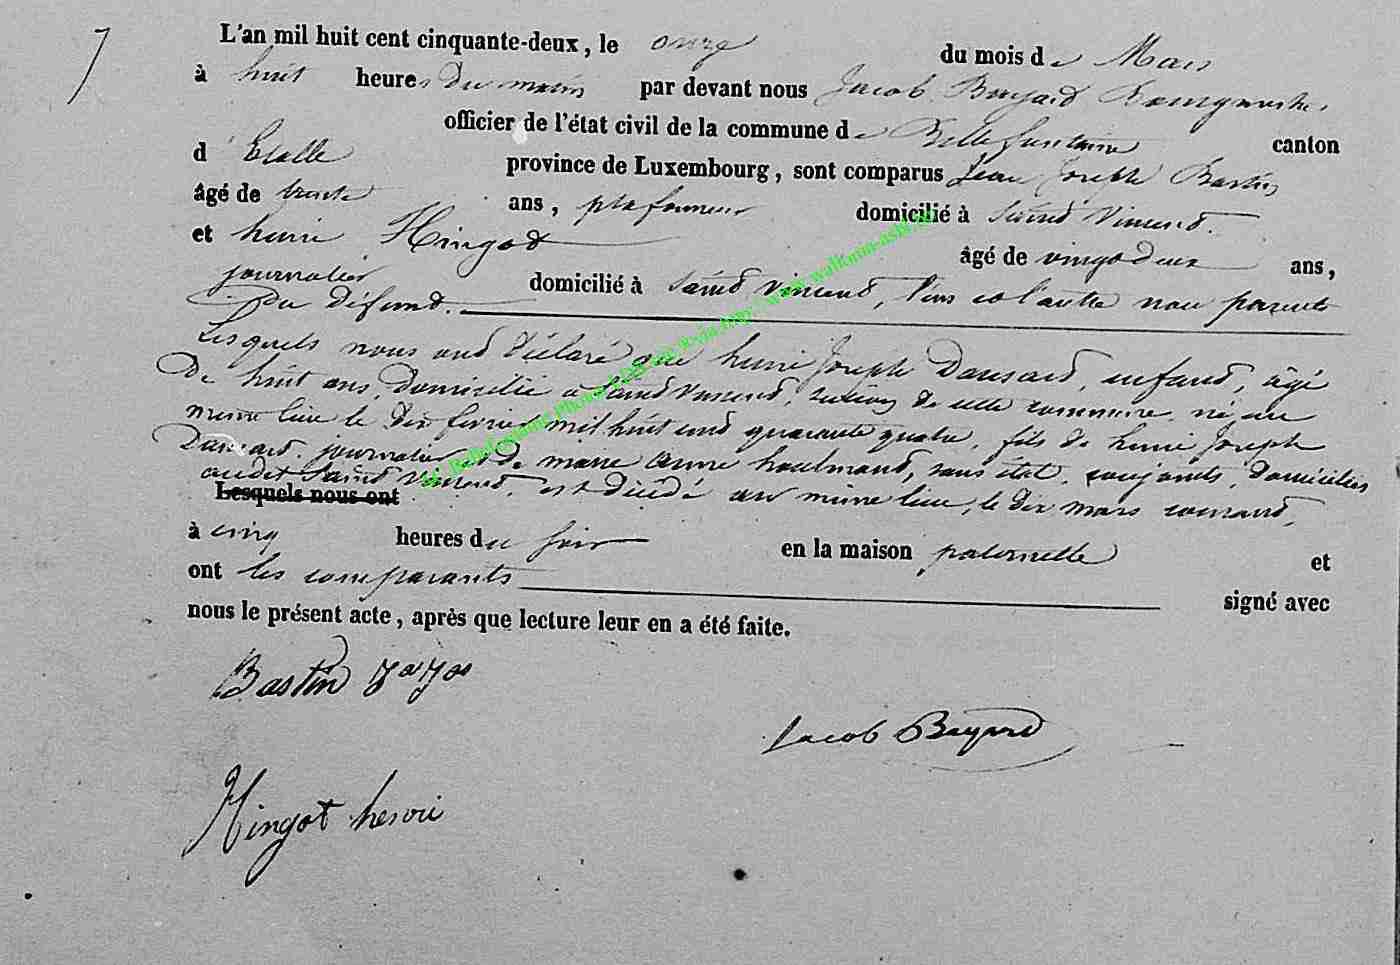 7
L'an mil huit cent cinquante-deux, le onze du mois de Mars
à huit heures du matin par devant nous Jacob Bayard Bourgmestre
officier de l'état civil de la commune de Bellefontaine canton
d'Etalle province de Luxembourg, sont comparus Jean Joseph Bastin
âgé de trente ans, plafonneur domicilié à Saind Vincend.
et henri Hingot âgé de vingt deux ans,
journalier domicilié à Saind Vincend, l'un et l'autre non parents
du défund.
Lesquels nous ond déclaré que henri Joseph Dansard, enfand, âgé
de huit ans, domicilié à Saind Vincend, section de cette commune, né au
même lieu le dix février mil huit cend quarante quatre, fils de henri Joseph
Dansard, journalier et de marie anne houlmand, sans état, conjoints, domiciliés
audit Saind Vincend, est décédé au même lieu, le dix mars courand,
Lesquels nous ont
à cinq heures du soir en la maison paternelle et
ont les comparants signé avec
nous le présent acte, après que lecture leur en a été faite.
Bastin
Jacob Bayard
Hingot henri